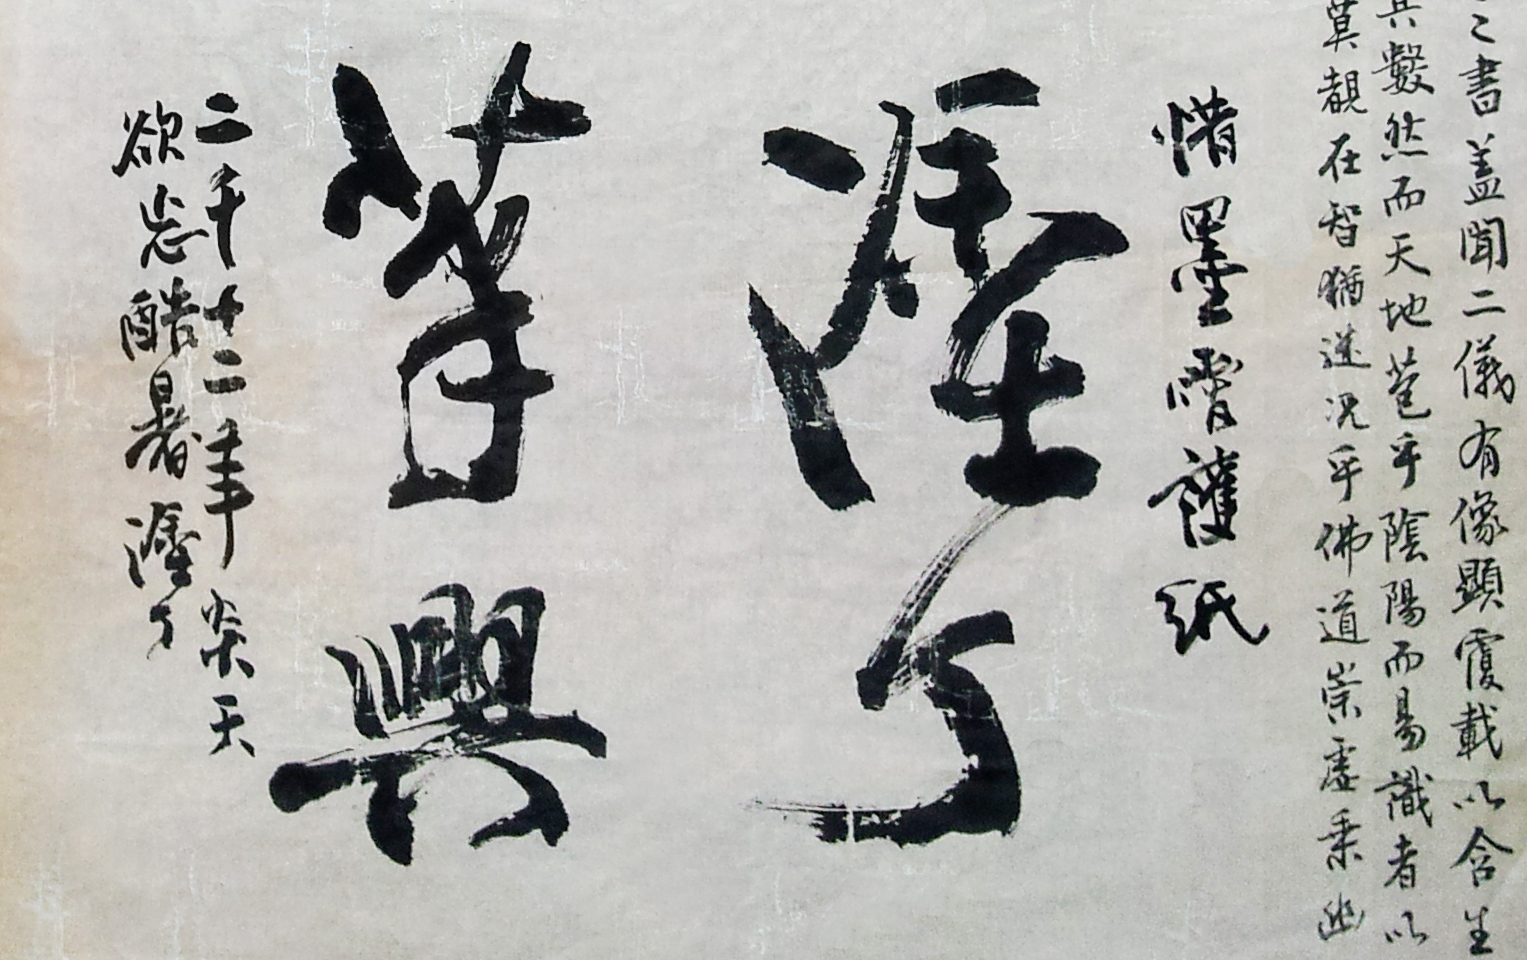 書蓋聞二儀有像顯覆載以含生
其數然而天地苞乎陰陽而易識者以
莫覩在智猶迷況乎佛道崇虛乘幽
惜墨護紙
了
筆興
二千十二年炎天
欲忘酷暑了